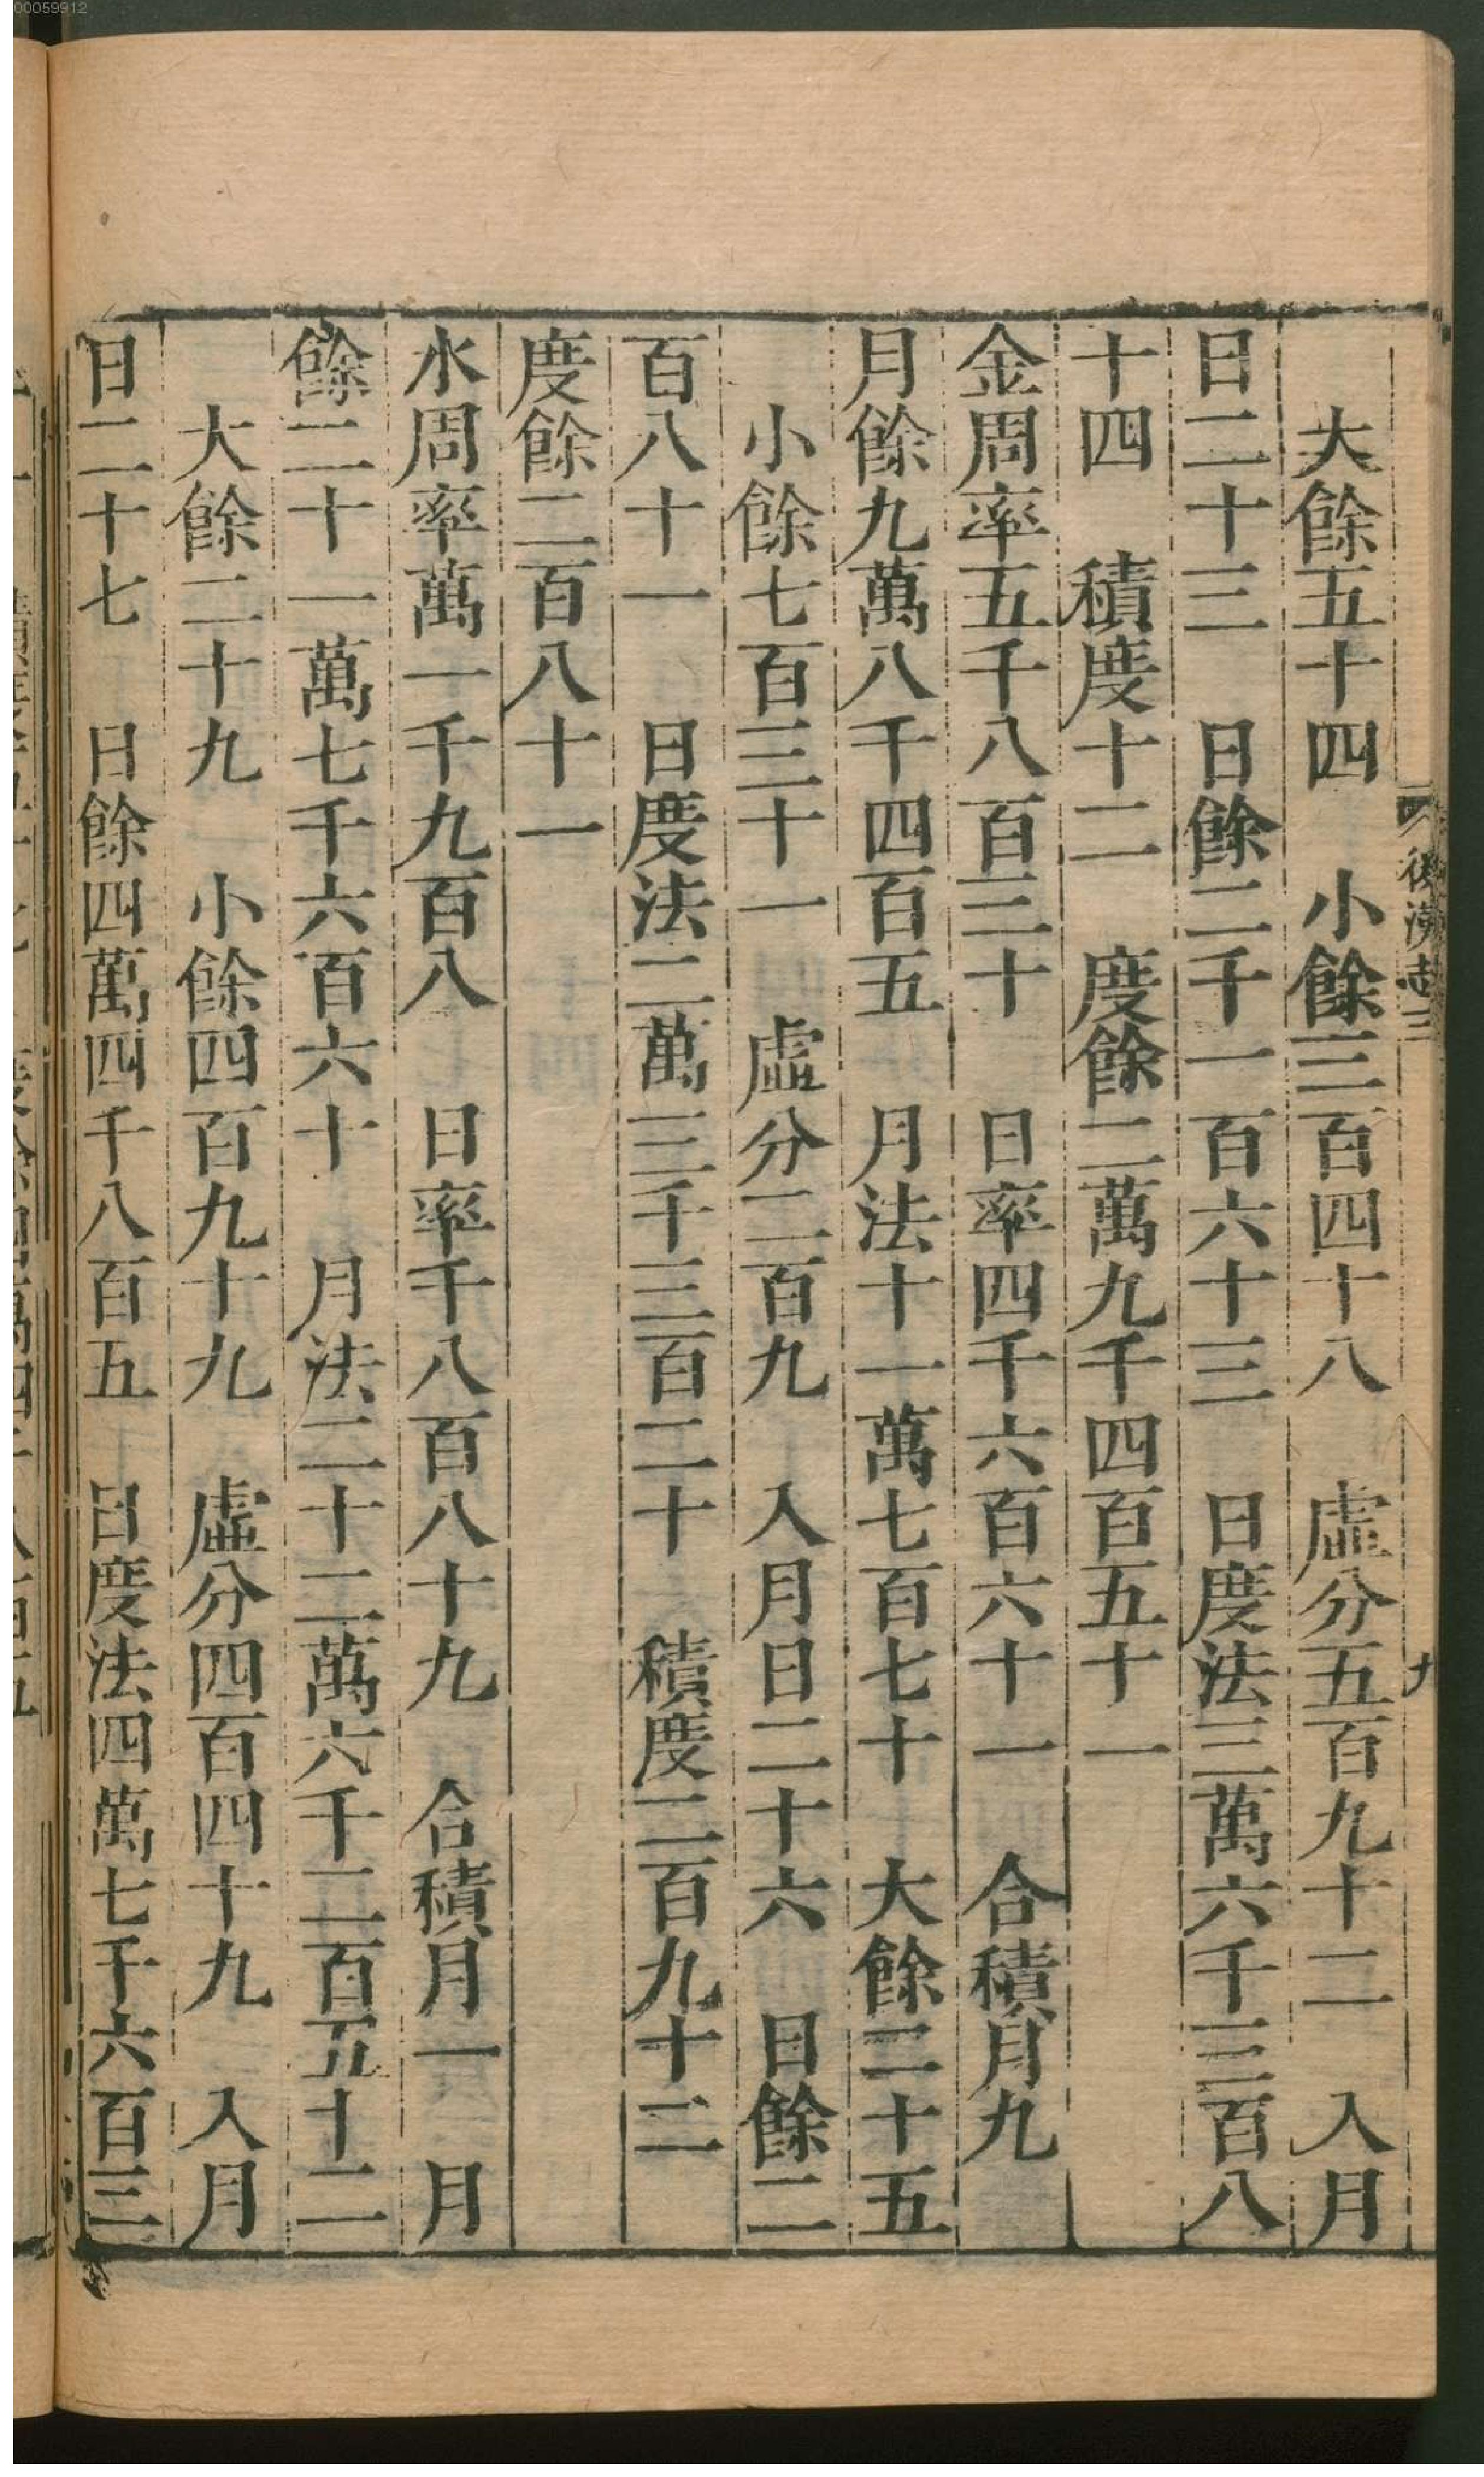 大餘五十四　小餘三百四十八　虛分五百九十二　入月
日二十三　日餘二千一百六十三　日度法三萬六千三百八
十四　積度十二　度餘二萬九千四百五十一
金周率五千八百三十　日率四千六百六十一　合積月九
月餘九萬八千四百五　月法十一萬七百七十　大餘二十五
小餘七百三十一　虛分二百九　入月日二十六　日餘二
百八十一　日度法二萬三千三百二十　積度二百九十二
度餘二百八十一
水周率萬一千九百八　日率千八百八十九　合積月一　月
餘二十一萬七千六百六十　月法二十二萬六千二百五十二
大餘二十九　小餘四百九十九　虛分四百四十九　入月
日二十七　日餘四萬四千八百五　日度法四萬七千六百三
後漢志三
九
00059912